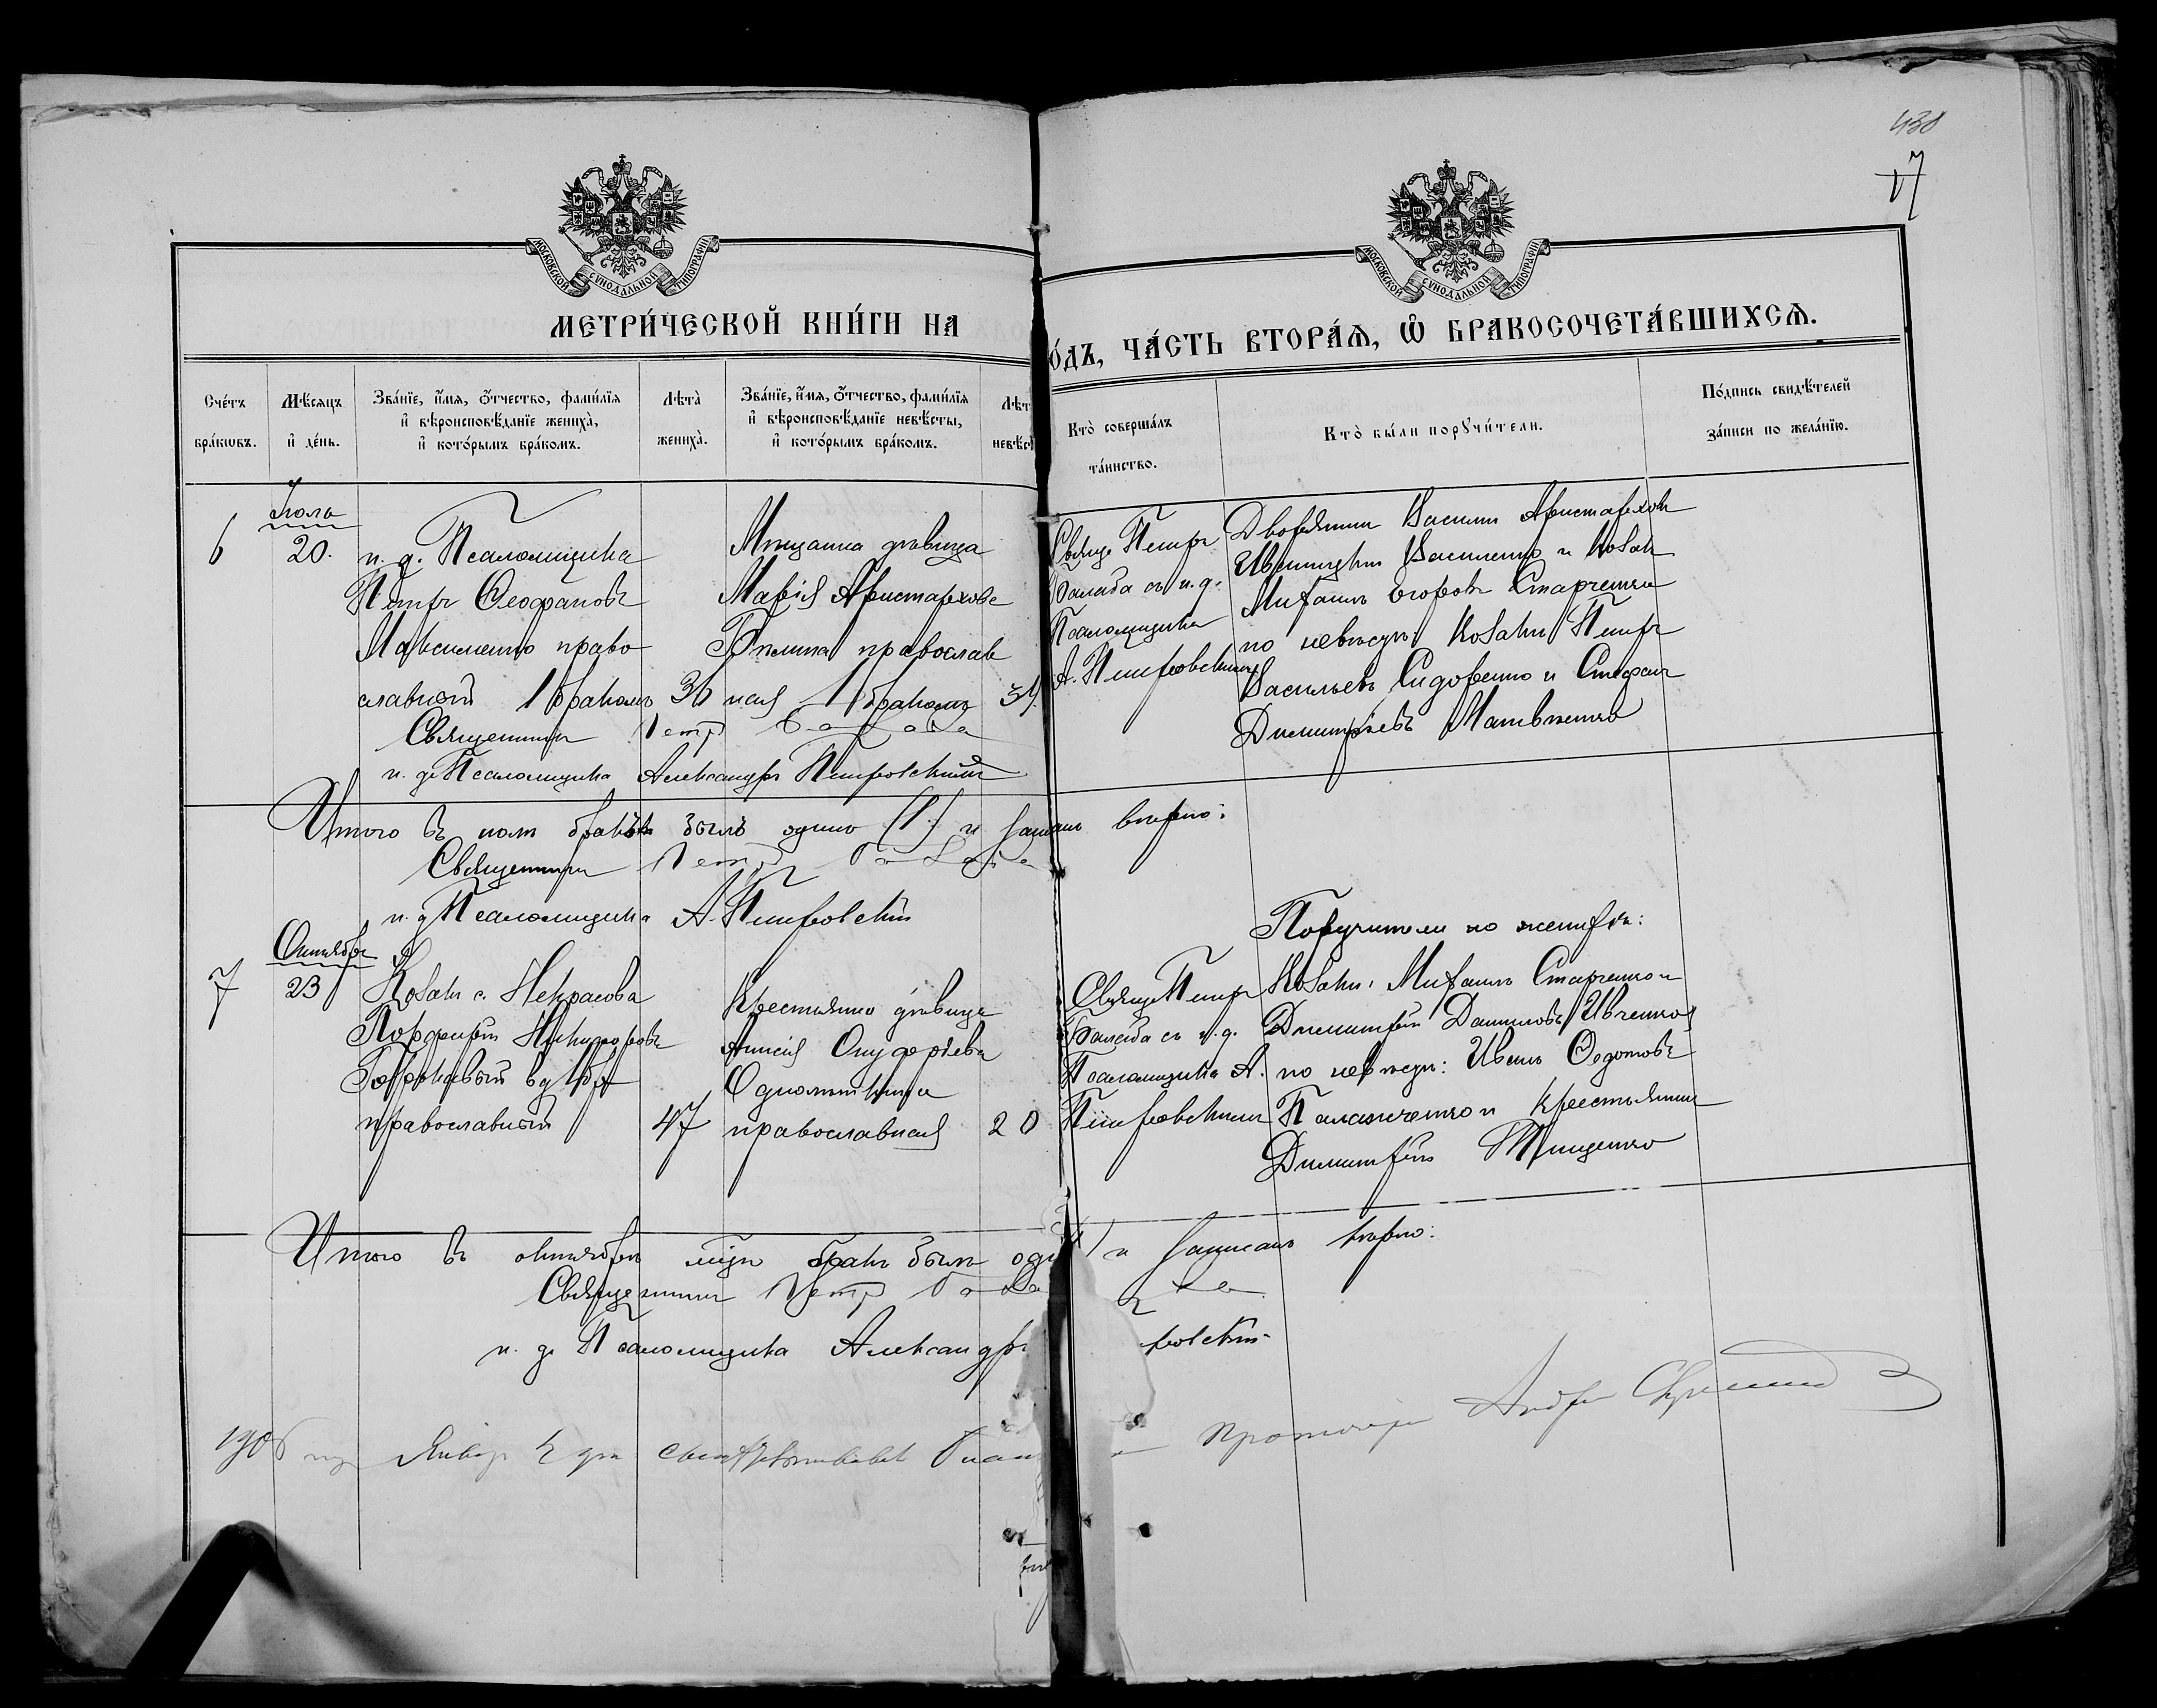 438
17
МОСКОВСКОЙ СѴНОДАЛЬНОЙ ТИПОГРАФІИ
МОСКОВСКОЙ СѴНОДАЛЬНОЙ ТИПОГРАФІИ
МЕТРИ́ЧЕСКОЙ КНИ́ГИ НА
О́ДЪ, ЧА́СТЬ ВТОРА́Ѧ, Ѡ БРАКОСОЧЕТА́ВШИХСѦ.
Сче́тъ бра́кѡвъ.
Мѣ́сѧцъ и҆ де́нь.
Зва́нїе, и҆́мѧ, ѻ҆́тчество, фами́лїѧ
и҆ вѣроисповѣ́данїе жениха̀,
и҆ кото́рымъ бра́комъ.
Лѣта̀ жениха̀.
Зва́нїе, и҆́мѧ, ѻ҆́тчество, фами́лїѧ
и҆ вѣроисповѣ́данїе невѣ́сты,
и҆ кото́рымъ бра́комъ.
Лѣт невѣ́с
Кто̀ соверша́лъ та́инство.
Кто̀ бы́ли порꙋчи́тели.
По́дпись свидѣ́телей за́писи по жела́нїю.
6
Іюль
20.
и. д. Псаломщика
Петръ Ѳеофановъ
Максименко право
славный 1 бракомъ
36
Мѣщанка дѣвица
Марія Аристархова
Билина православ
ная 1 бракомъ
Свящ Петръ
Балаба съ и. д.
Псаломщика
А. Петровскимъ
Дворянинъ Василій Аристарховъ
Василенко и Козакъ
Михаилъ Егоровъ Старченко
по невѣстѣ: Козаки Петръ
Васильевъ Сидоренко и Стефанъ
Димитріевъ Матвѣенко
Священникъ Петръ Балаба
и. д. Псаломщика Александръ Петровскій
Итого въ іюлѣ бракъ былъ одинъ (1) и записанъ вѣрно:
Священникъ Петръ Балаба
и. д. Псаломщика А. Петровскій
7
Октябрь
23
Козакъ с. Некрасова
Порфирій Никифоровъ
православный
47
Крестьянка дѣвица
Анисія Онуфріева
православная
20
Свящ Петръ
Балаба съ и. д.
Псаломщика А.
Петровскимъ
Поручители по женихѣ:
Козаки: Михаилъ Старченко и
Димитрій Даниловъ Ивченко
по невѣстѣ: Иванъ Ѳедотовъ
и Крестьянинъ
Димитрій Тищенко
Итого въ октябрѣ м҃цѣ бракъ былъ оди и записанъ вѣрно:
Священникъ Петръ Бала ба
и. д. Псаломщика Александръ ровскій
1906 год Январ 2 дня свидѣтельствовалъ
Протоіерей Андрей